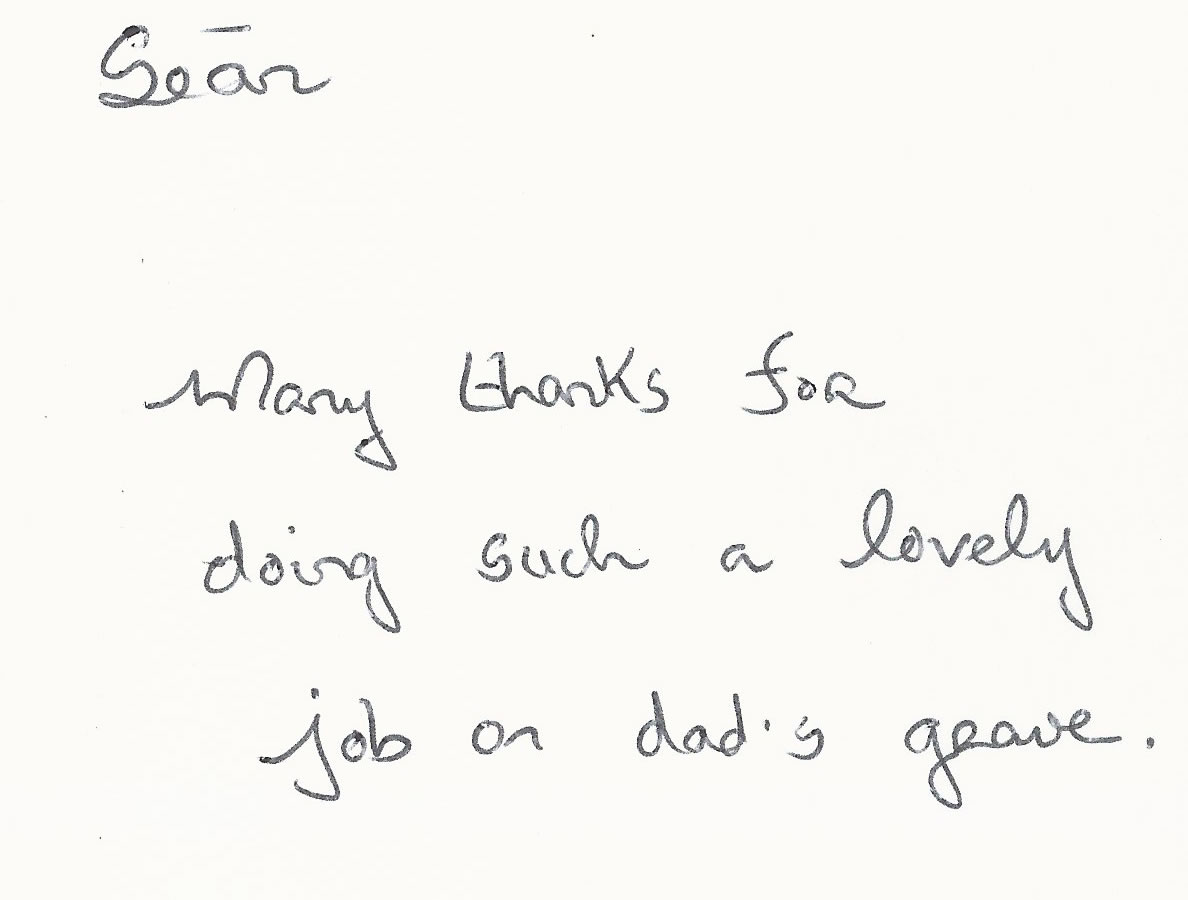 Seán
Many thanks for
doing such a lovely
job on dad's grave.